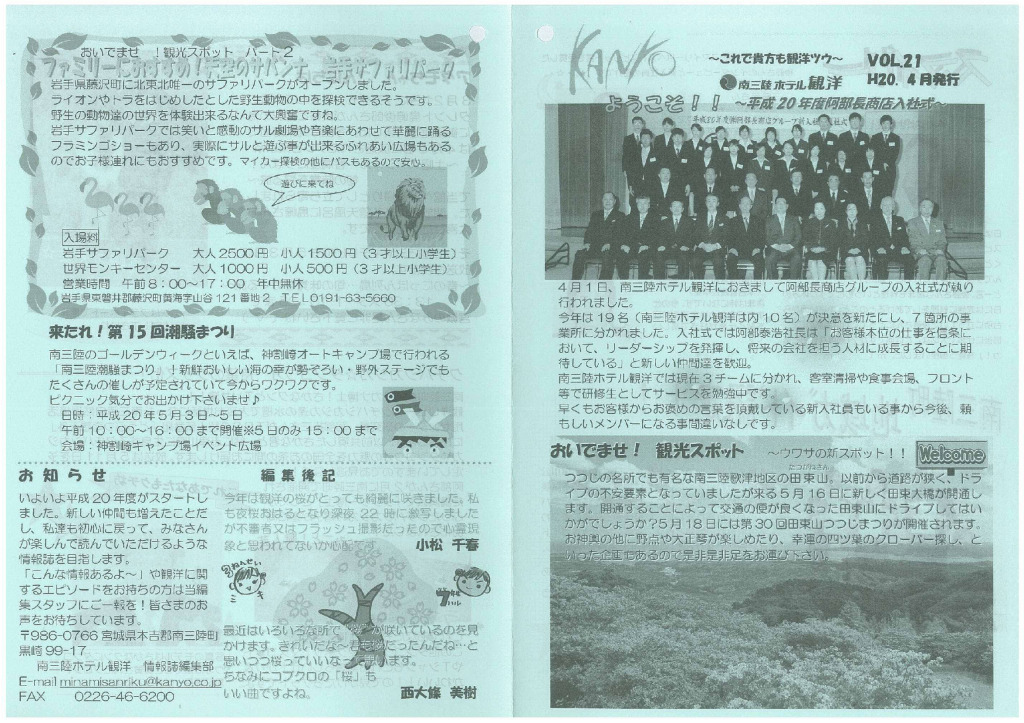 おいでませ　！観光スポット　パート２
ファミリーにおすすめ！天空のサバンナ　岩手サファリパーク
岩手県藤沢町に北東北唯一のサファリパークがオープンしました。
ライオンやトラをはじめしたとした野生動物の中を探検できるそうです。
野生の動物達の世界を体験出来るなんて大興奮ですね。
岩手サファリパークでは笑いと感動のサル劇場や音楽にあわせて華麗に踊る
フラミンゴショーもあり、実際にサルと遊ぶ事が出来るふれあい広場もある
のでお子様連れにもおすすめです。マイカー探検の他にバスもあるので安心。
遊びに来てね
入場料
岩手サファリパーク　大人２５００円　小人１５００円（３才以上小学生）
世界モンキーセンター　大人１０００円　小人５００円（３才以上小学生）
営業時間　午前８：００～１７：００　年中無休
岩手県東磐井郡藤沢町黄海字山谷１２１番地２　ＴＥＬ0191-63-5660
来たれ！第１５回潮騒まつり
南三陸のゴールデンウィークといえば、神割崎オートキャンプ場で行われる
「南三陸潮騒まつり」！新鮮おいしい海の幸が勢ぞろい・野外ステージでも
たくさんの催しが予定されていて今からワクワクです。
ピクニック気分でお出かけ下さいませ♪
日時：平成２０年５月３日～５日
午前１０：００～１６：００まで開催※５日のみ１５：００まで
会場：神割崎キャンプ場イベント広場
お知らせ
いよいよ平成２０年度がスタートし
ました。新しい仲間も増えたことだ
し、私達も初心に戻って、みなさん
が楽しんで読んでいただけるような
情報誌を目指します。
「こんな情報あるよ～」や観洋に関
するエピソードをお持ちの方は当編
集スタッフにご一報を！皆さまのお
声をお待ちしています。
〒986-0766 宮城県本吉郡南三陸町
黒崎99-17
南三陸ホテル観洋　情報誌編集部
E-mail minamisanriku@kanyo.co.jp
FAX　0226-46-6200
編集後記
今年は観洋の桜がとっても綺麗に咲きました。私
も夜桜おはるとなり深夜２２時に激写しました
が不審者又はフラッシュ撮影だったので心霊現
象と思われてないか心配です。
小松　千春
最近はいろいろな所で「桜」が咲いているのを見
かけます。きれいだな～君桜だったんだね…と
思いつつ桜っていいなと思います。
ちなみにコブクロの「桜」も
いい曲ですよね。
西大條　美樹
KANYO
～これで貴方も観洋ツウ～
VOL.21
H20. 4月発行
南三陸ホテル観洋
ようこそ！！　～平成２０年度阿部長商店入社式～
４月１日、南三陸ホテル観洋におきまして阿部長商店グループの入社式が執り
行われました。
今年は１９名（南三陸ホテル観洋は内１０名）が決意を新たにし、７箇所の事
業所に分かれました。入社式では阿部泰浩社長は「お客様本位の仕事を信条
において、リーダーシップを発揮し、将来の会社を担う人材に成長することに期
待している」と新しい仲間達を歓迎。
南三陸ホテル観洋では現在３チームに分かれ、客室清掃や食事会場、フロント
等で研修生としてサービスを勉強中です。
早くもお客様からお褒めの言葉を頂戴している新入社員もいる事から今後、頼
もしいメンバーになる事間違いなしです。
おいでませ！　観光スポット　～ウワサの新スポット！！
Welcome
つつじの名所でも有名な南三陸歌津地区の田束山。以前から道路が狭く、ドラ
イブの不安要素となっていましたが来る５月１６日に新しく田束大橋が開通しま
す。開通することによって交通の便が良くなった田束山にドライブしてはい
かがでしょうか？５月１８日には第３０回田束山つつじまつりが開催されます。
お神輿の他に野点や大正琴が楽しめたり、幸運の四ツ葉のクローバー探し、と
いった企画もあるので是非是非足をお運び下さい。